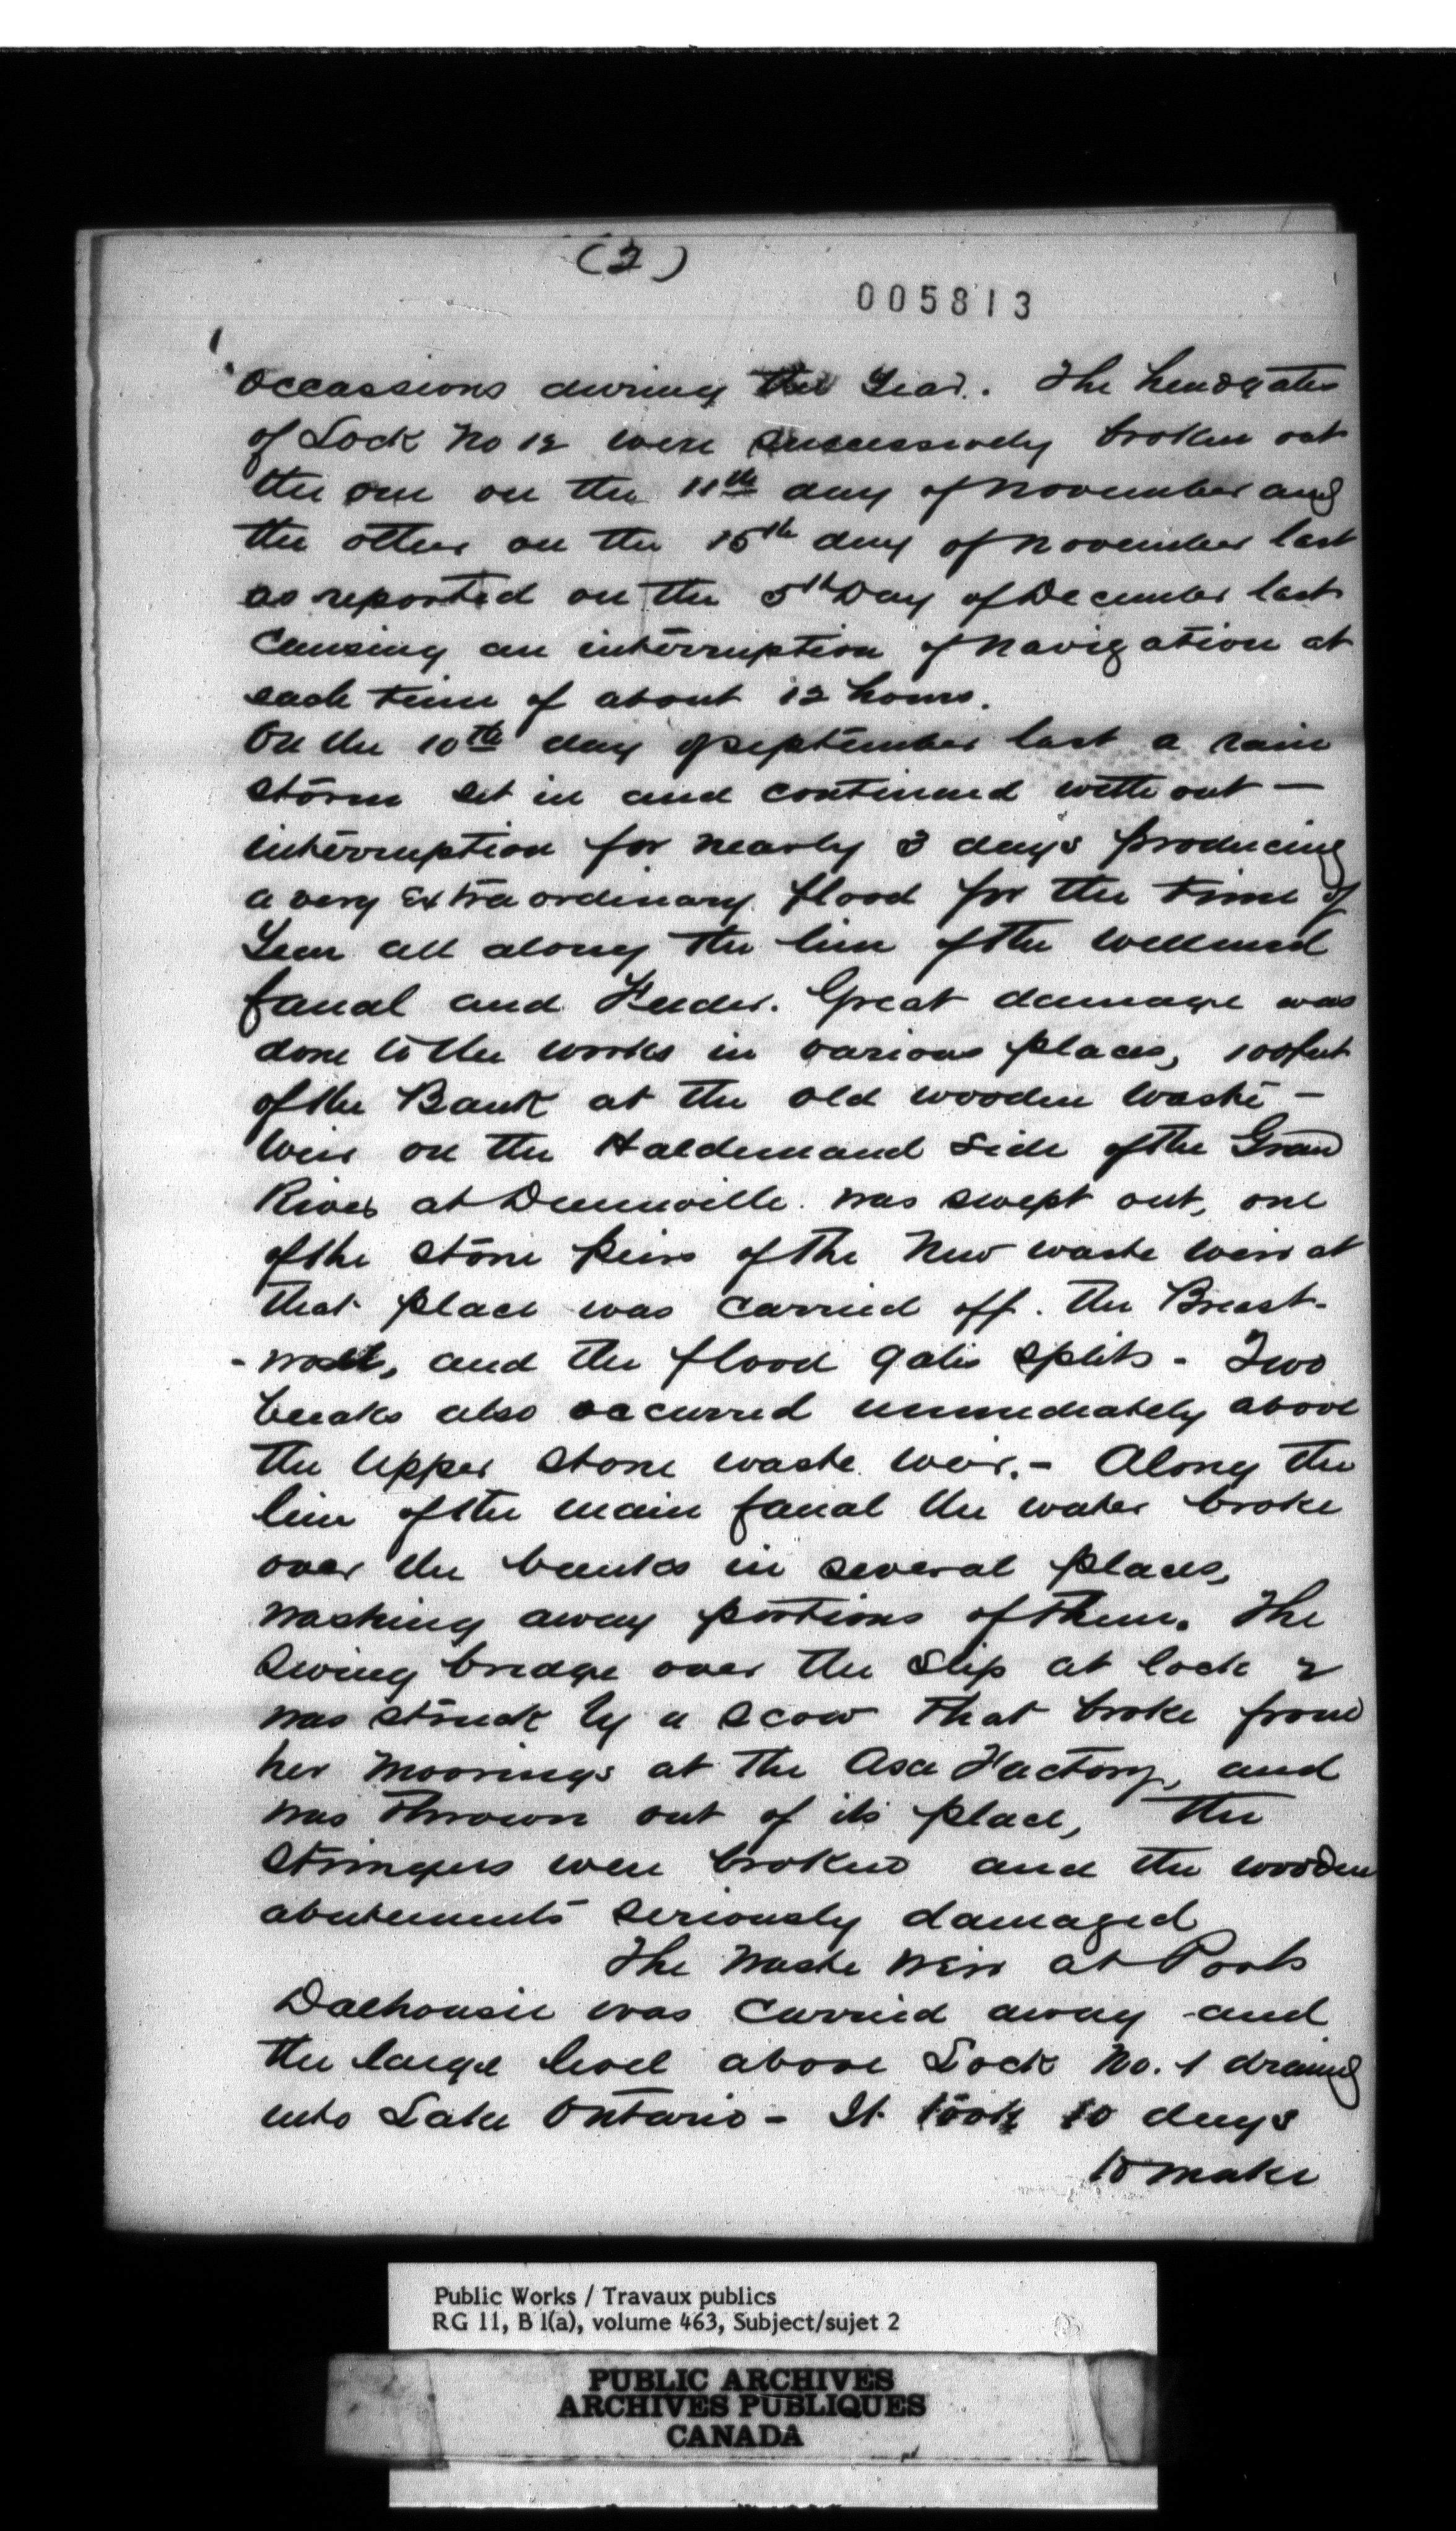 (2)
005813
occassions during the Year. The headgates
of Lock No 12 were successively broken out
the one on the 11th day of November and
the other on the 15th day of November last
as reported on the 5th Day of December last
Causing an interruption of navigation at
each time of about 12 hours.
On the 10th day of september last a rain
storm set in and continued without —
interruption for nearly 3 days producing
a very Extraordinary flood for the time of
Year all along the line of the Welland
Canal and Feeder. Great damage was
done to the works in various places, 100 feet
of the Bank at the old wooden waste –
Weir on the Haldemand side of the Grand
River at Dunnville was swept out, one
of the stone Piers of the New waste weir at
that place was carried off. the Breast-
-wall, and the flood gates split. - Two
breaks also occurred immediately above
the Upper stone waste weir. - Along the
line of the main Canal the water broke
over the banks in several places,
washing away portions of them. The
Swing bridge over the Slip at lock 2
was struck by a scow that broke from
her moorings at the Axe Factory, and
was thrown out of its place, the
stringers were broken and the wooden
abutements seriously damaged
The waste weir at Port
Dalhousie was carried away and
the large level above Lock No. 1 drained
into Lake Ontario - It took 10 days
to make
Public Works / Travaux publics
RG 11, B 1(a), volume 463, Subject/sujet 2
PUBLIC ARCHIVES
ARCHIVES PUBLIQUES
CANADA